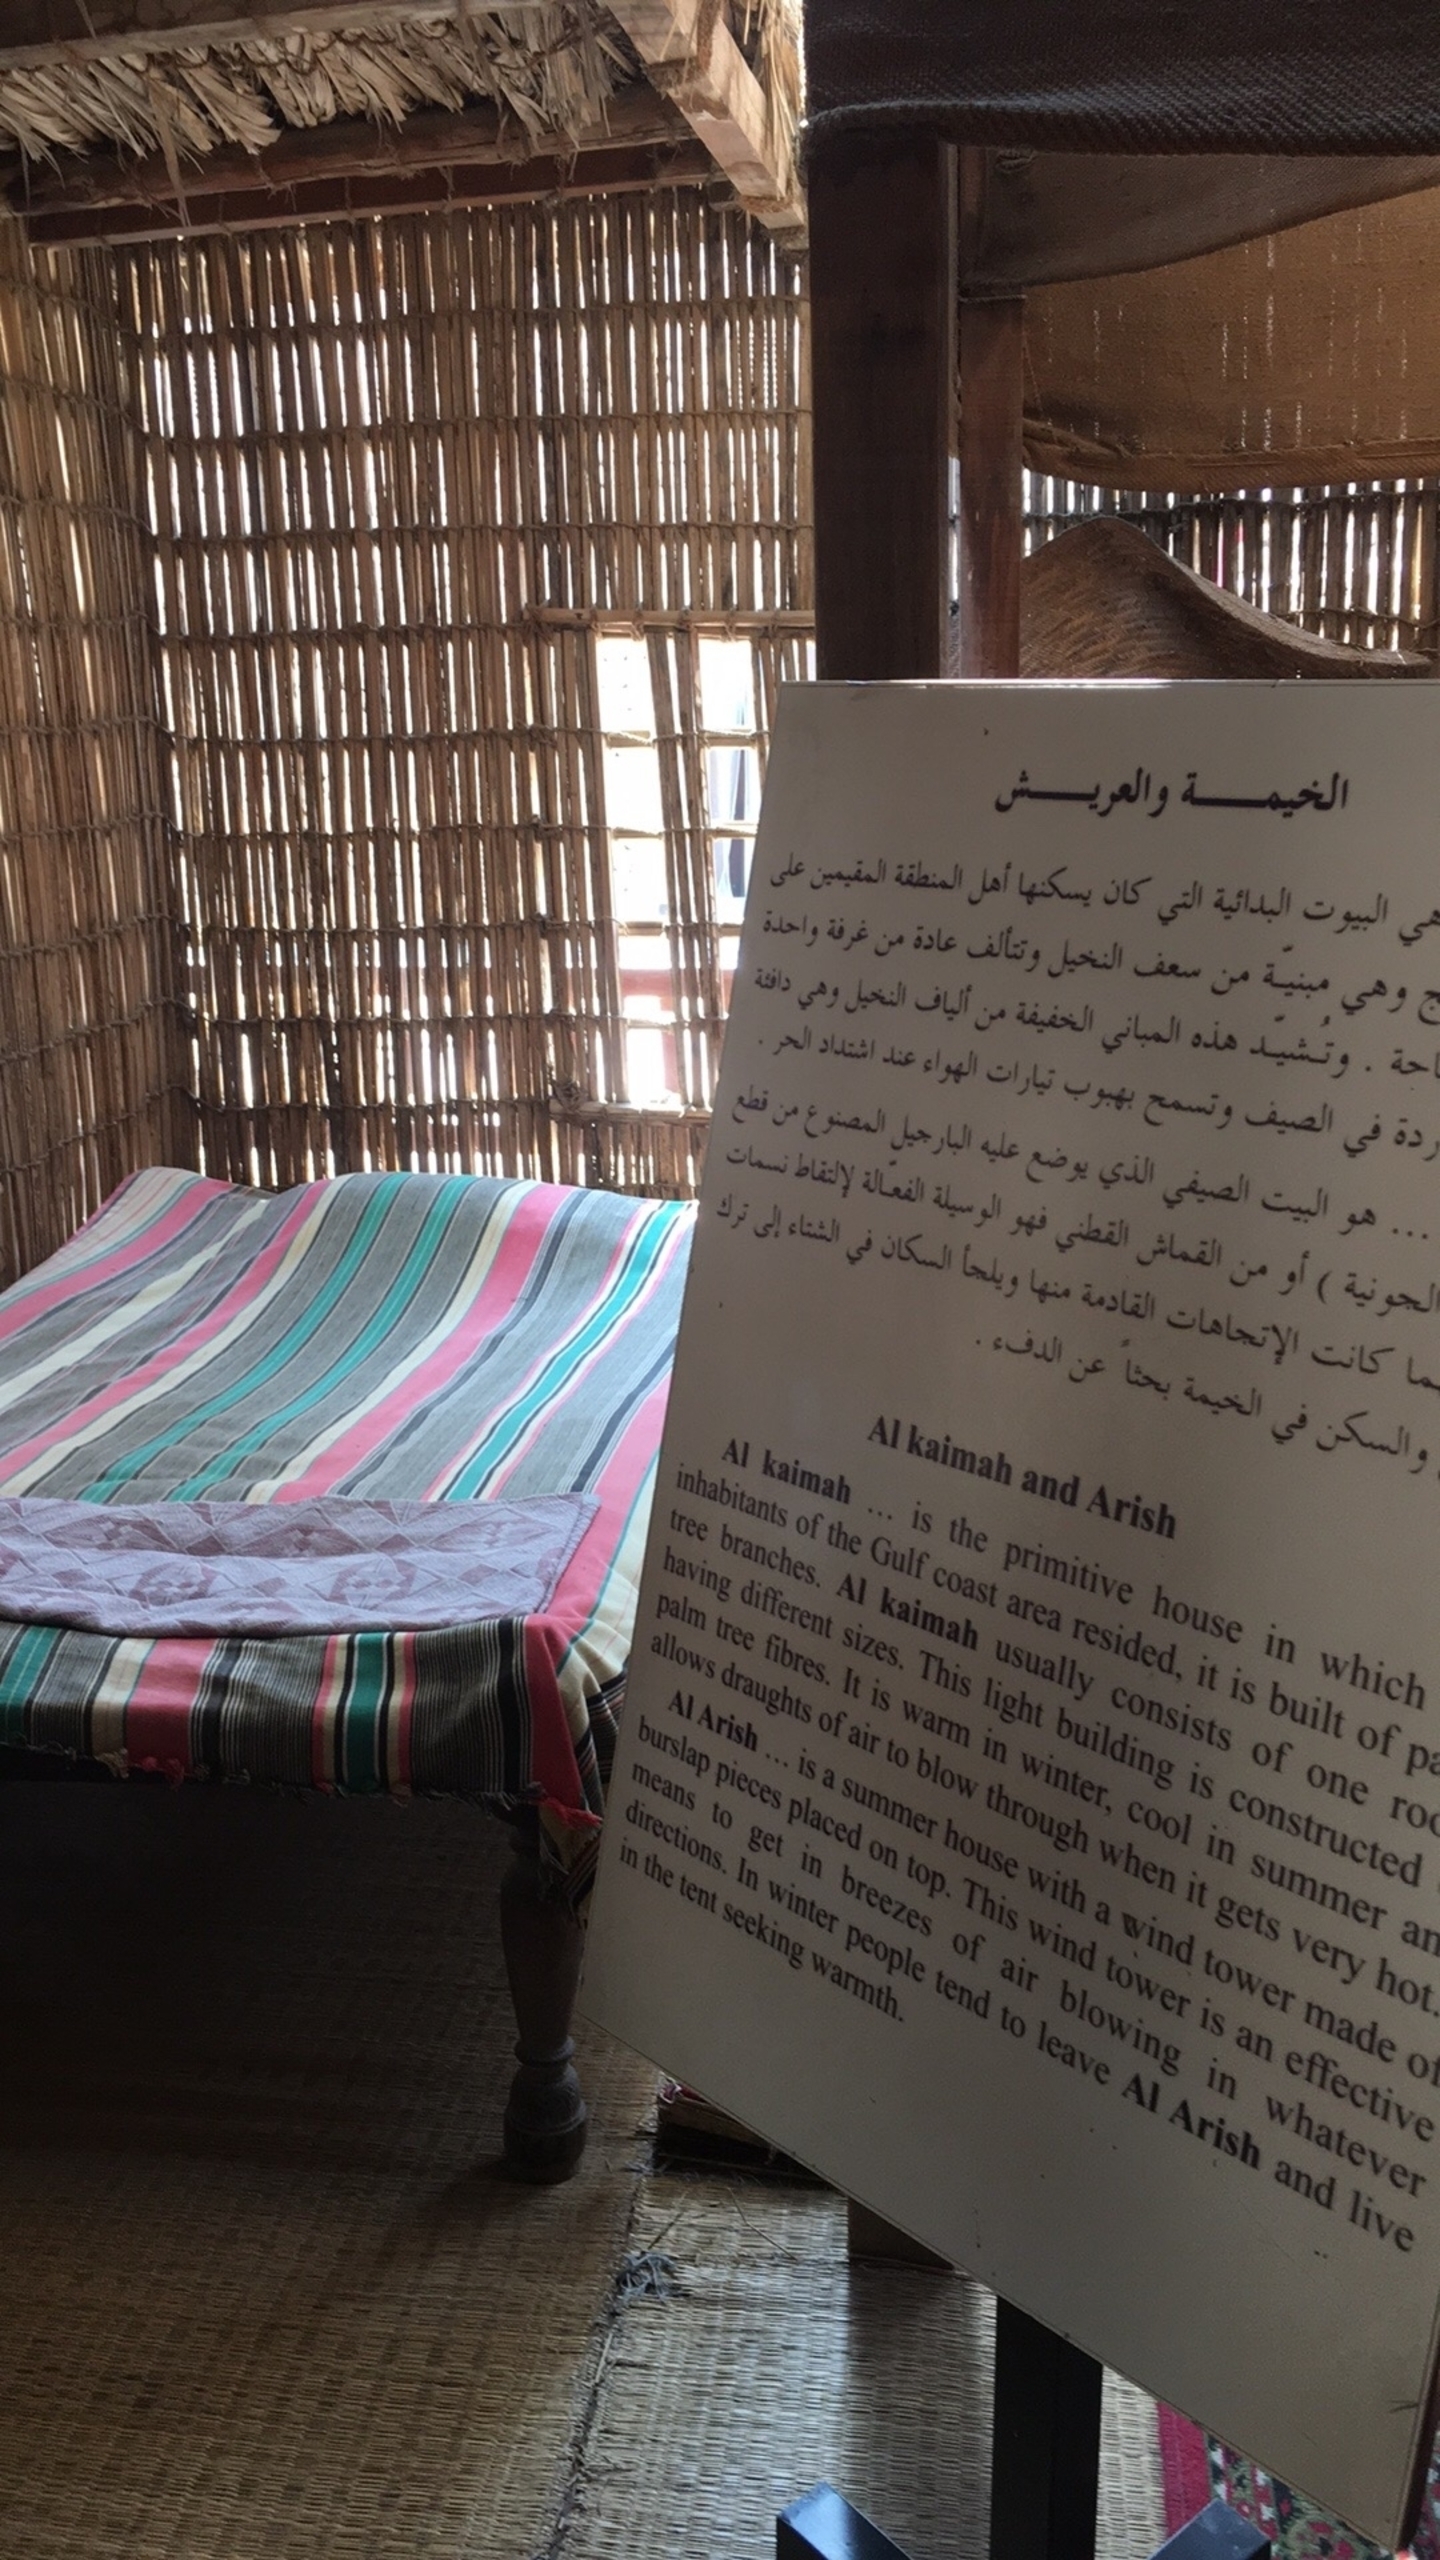 الخيمــــــة والعريــــــش
هي البيوت البدائية التي كان يسكنها أهل المنطقة المقيمين على
وهي مبنيّـة من سعف النخيل وتتألف عادة من غرفة واحدة
. وتُـشيّـد هذه المباني الخفيفة من ألياف النخيل وهي دافئة
في الصيف وتسمح بهبوب تيارات الهواء عند اشتداد الحر .
... هو البيت الصيفي الذي يوضع عليه البارجيل المصنوع من قطع
الجونية ) أو من القماش القطني فهو الوسيلة الفعّالة لإلتقاط نسمات
كانت الإتجاهات القادمة منها ويلجأ السكان في الشتاء إلى ترك
والسكن في الخيمة بحثاً عن الدفء .
Al kaimah and Arish
Al kaimah ... is the primitive house in which
inhabitants of the Gulf coast area resided, it is built of
tree branches. Al kaimah usually consists of one
having different sizes. This light building is constructed
palm tree fibres. It is warm in winter, cool in summer
allows draughts of air to blow through when it gets very hot.
Al Arish ... is a summer house with a wind tower made of
burslap pieces placed on top. This wind tower is an effective
means to get in breezes of air blowing in whatever
directions. In winter people tend to leave Al Arish and live
in the tent seeking warmth.